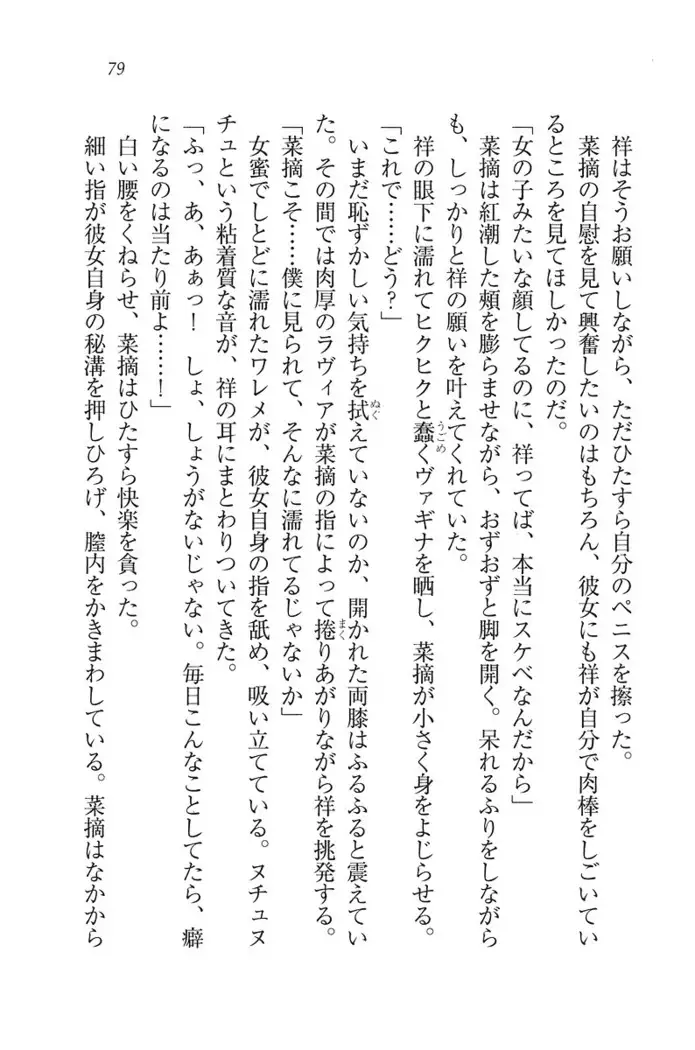 79
祥はそうお願いしながら、ただひたすら自分のペニスを擦った。
菜摘の自慰を見て興奮したいのはもちろん、彼女にも祥が自分で肉棒をしごいてい
るところを見てほしかったのだ。
「女の子みたいな顔してるのに、祥ってば、本当にスケベなんだから」
菜摘は紅潮した頰を膨らませながら、おずおずと脚を開く。呆れるふりをしながら
も、しっかりと祥の願いを叶えてくれていた。
祥の眼下に濡れてヒクヒクと蠢くヴァギナを晒し、菜摘が小さく身をよじらせる。
「これで……どう?」
いまだ恥ずかしい気持ちを拭えていないのか、開かれた両膝はふるふると震えてい
た。その間では肉厚のラヴィアが菜摘の指によって捲りあがりながら祥を挑発する。
「菜摘こそ……僕に見られて、そんなに濡れてるじゃないか」
女蜜でしとどに濡れたワレメが、彼女自身の指を舐め、吸い立てている。ヌチュヌ
チュという粘着質な音が、祥の耳にまとわりついてきた。
「ふっ、あ、あぁっ! しょ、しょうがないじゃない。毎日こんなことしてたら、癖
になるのは当たり前よ……!」
白い腰をくねらせ、菜摘はひたすら快楽を貪った。
細い指が彼女自身の秘溝を押しひろげ、膣内をかきまわしている。菜摘はなかから